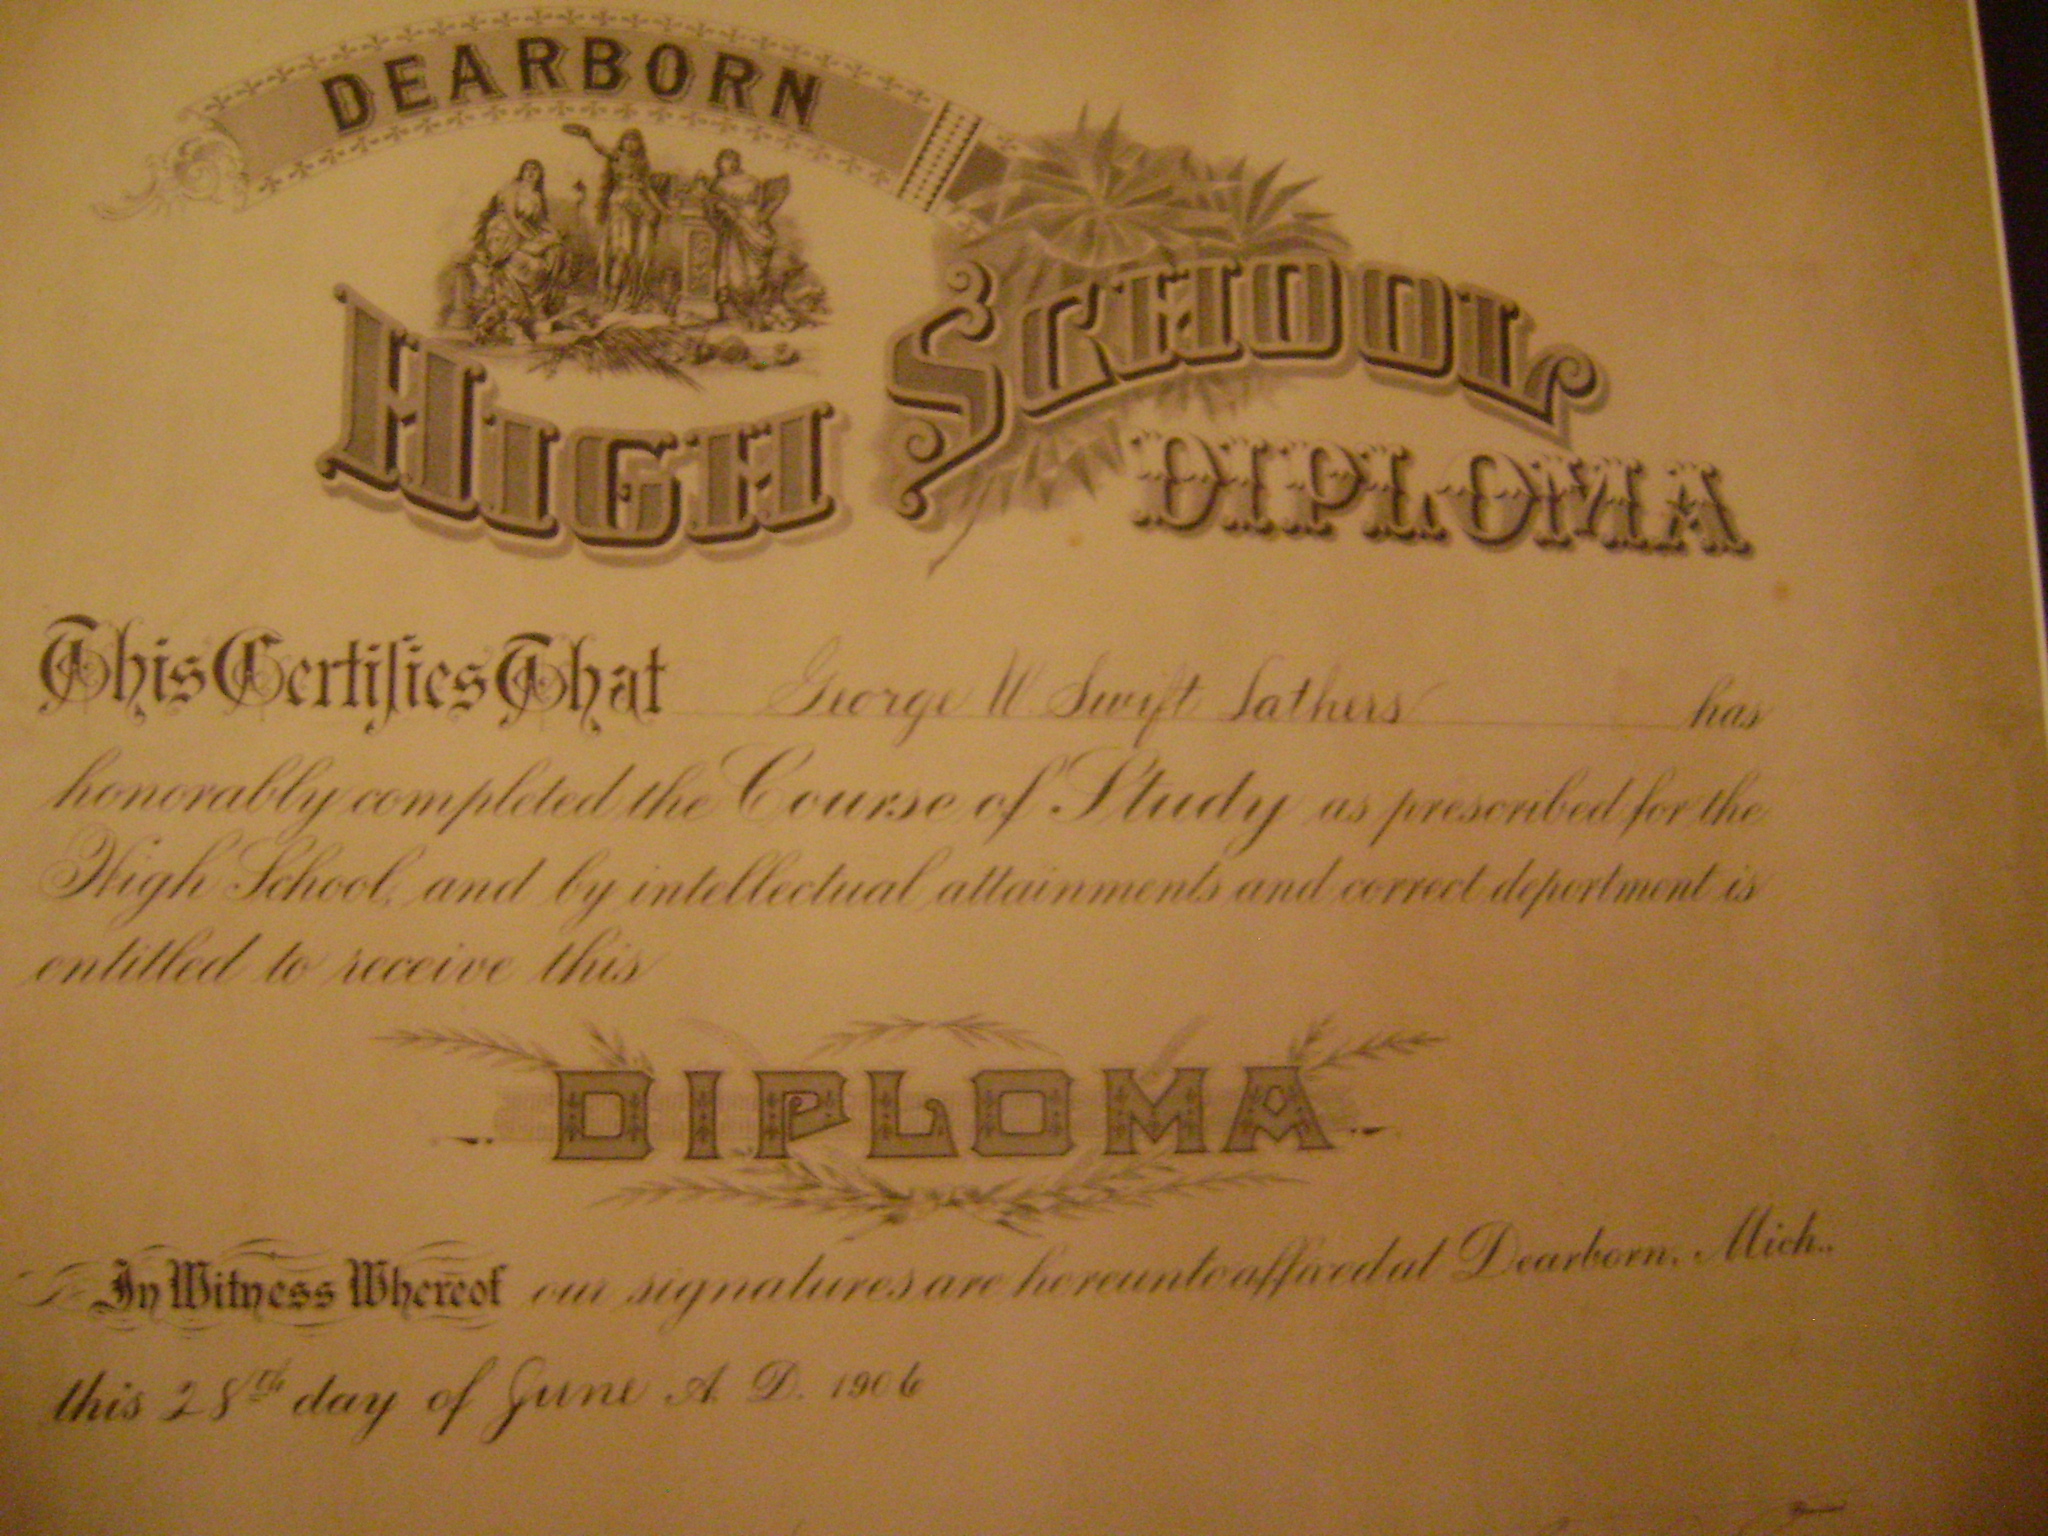 DEARBORN
HIGH SCHOOL
DIPLOMA
This Certifies That George W Swift Lathers has
honorably completed the Course of Study as prescribed for the
High School, and by intellectual attainments and correct deportment is
entitled to receive this
DIPLOMA
In Witness Whereof our signatures are hereunto affixed at Dearborn, Mich.,
this 28th day of June A. D. 1906